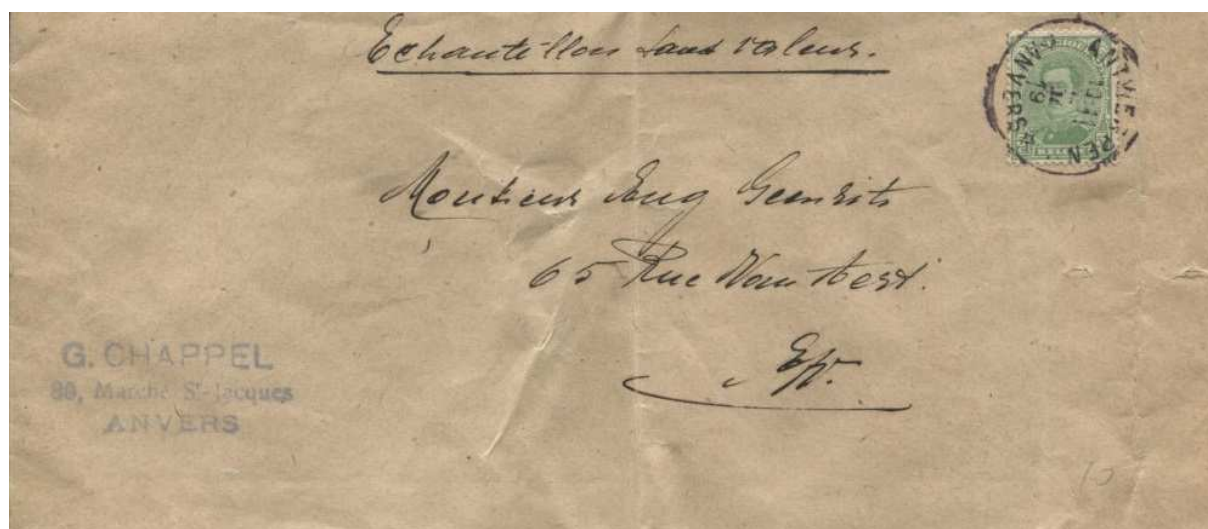 Echantillon sans valeur.
ANTWERPEN
ANVERS
Monsieur Eug
65 Rue
E/V.
G. CHAPPEL
89, Marché St-Jacques
ANVERS
10